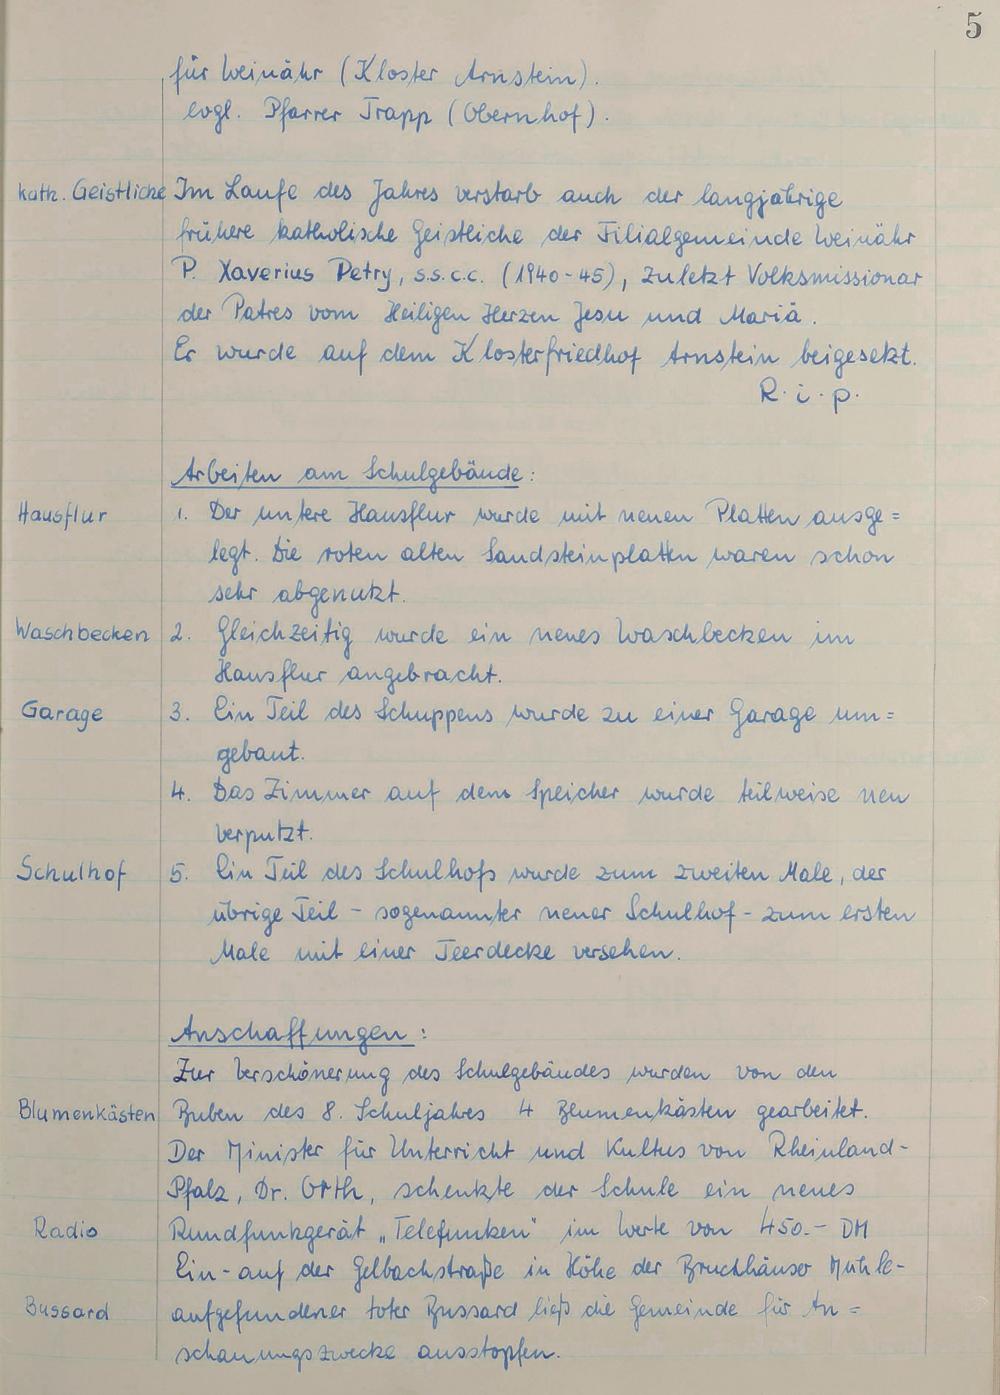 5
für Weinähr (Kloster Arnstein).
evgl. Pfarrer Trapp (Obernhof).
kath. Geistliche Im Laufe des Jahres verstarb auch der langjährige
frühere katholische Geistliche der Filialgemeinde Weinähr
P. Xaverius Petry, s.s.c.c. (1940-45), zuletzt Volksmissionar
der Patres vom Heiligen Herzen Jesu und Mariä.
Er wurde auf dem Klosterfriedhof Arnstein beigesetzt.
R. i. p.
Arbeiten am Schulgebäude:
Hausflur 1. Der untere Hausflur wurde mit neuen Platten ausge=
legt. Die roten alten Sandsteinplatten waren schon
sehr abgenutzt.
Waschbecken 2. Gleichzeitig wurde ein neues Waschbecken im
Hausflur angebracht.
Garage 3. Ein Teil des Schuppens wurde zu einer Garage um=
gebaut.
4. Das Zimmer auf dem Speicher wurde teilweise neu
verputzt.
Schulhof 5. Ein Teil des Schulhofs wurde zum zweiten Male, der
übrige Teil - sogenannter neuer Schulhof - zum ersten
Male mit einer Teerdecke versehen.
Anschaffungen:
Zur Verschönerung des Schulgebäudes wurden von den
Blumenkästen Buben des 8. Schuljahres 4 Blumenkästen gearbeitet.
Der Minister für Unterricht und Kultus von Rheinland-
Pfalz, Dr. Orth, schenkte der Schule ein neues
Radio Rundfunkgerät „Telefunken" im Werte von 450.- DM
Ein - auf der Gelbachstraße in Höhe der Bruchhäuser Mühle -
Bussard aufgefundener toter Bussard ließ die Gemeinde für An=
schauungszwecke ausstopfen.